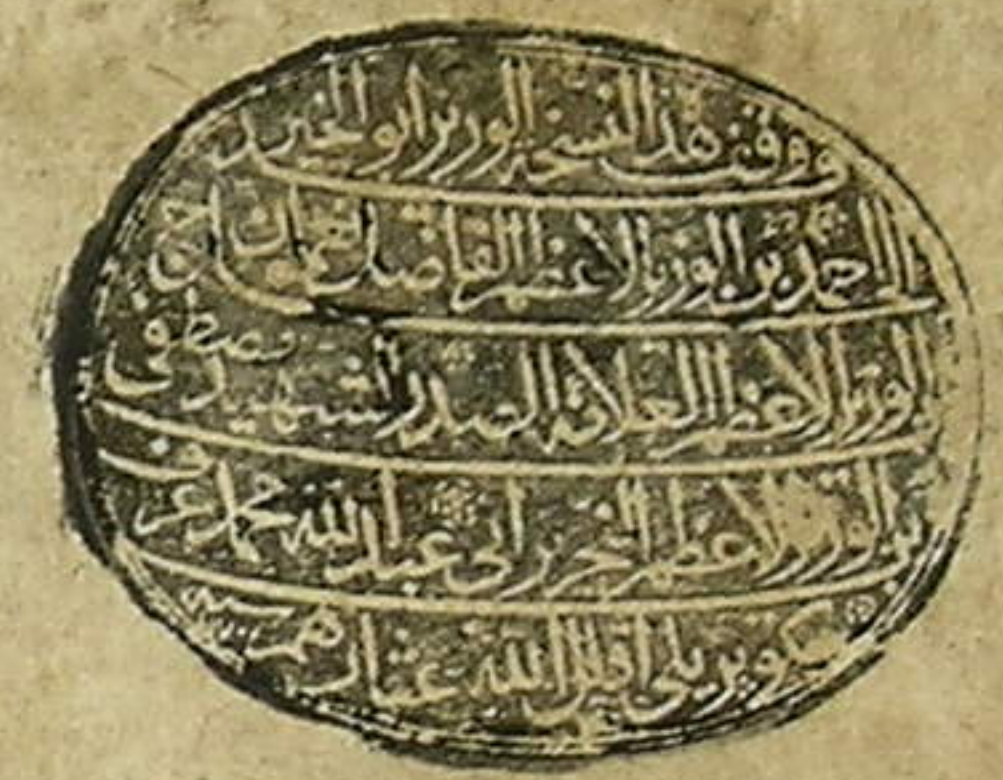 وقف هذا النسخة الوزير ابو الخير
الحاج احمد بن الوزير الاعظم الفاضل نعمان
بن الوزير الاعظم العلامة الصدر الشهيد مصطفى
بن الوزير الاعظم النحرير ابي عبد الله محمد عرف
بكوبريلي اقال الله عثارهم